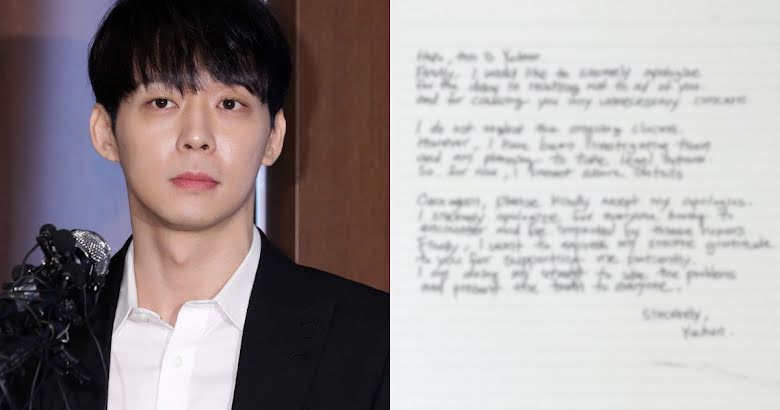 Hello, this is
Firstly, I would like to sincerely apologize
for the delay in reaching out to all of you
and for causing you any unnecessary concern
I do not neglect the ongoing
However, I have been investigating them
and am planning to take legal
So, for now, I cannot share details
Once again, please kindly accept my apologies.
I sincerely apologize for everyone having to
encounter and be impacted by these rumors
Finally, I want to express my sincere gratitude
to you for supporting me patiently.
I am doing my utmost to solve the problems
and present the truth to everyone.
Sincerely,